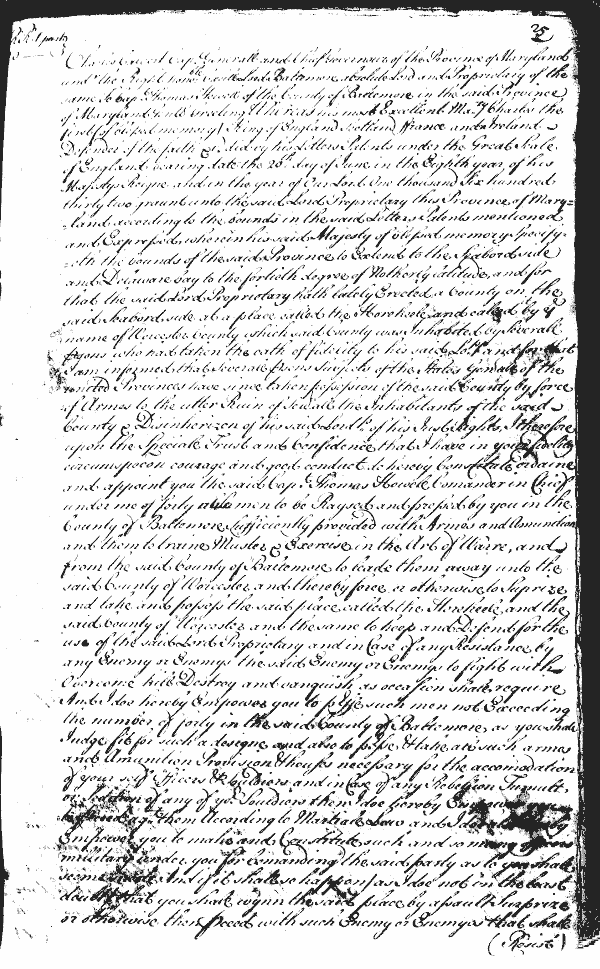 25
Charles Calvert Cap. Generall and Chief Governour of the Province of Maryland
under the Right honoble Lord Baltemore absolute Lord and Proprietary of the
same To Cap. Thomas Howell of the County of Baltemore in the said Province
of Maryland Gent Greeting Whereas his most Excellent Maty Charles the
first of blessed memory King of England Scotland ffrance and Ireland
Defender of the faith &c did by his Letters Patents under the Great Seale
of England bearing date the 20th day of June in the Eighth year of his
Majestys Reigne and in the year of Our Lord One thousand Six hundred
thirty two graunt unto the said Lord Proprietary this Province of Mary=
=land according to the bounds in the said Letters Patents mentioned
and Expressed wherein his said Majesty of blessed memory Specify=
=eth the bounds of the said Province to Extend to the Seabord side
and Delaware bay to the fortieth degree of Northerly latitude, and for
that the said Lord Proprietary hath lately Erected a County on the
said Seabord side at a place called the Horekeele and called by ye
name of Worcester County which said County was Inhabited by severall
psons who had taken the oath of fidelity to his said Lopp and for that
I am informed that severall psons Subjects of the States Generall of the
united Provinces have since taken possession of the said County by force
of Armes to the utter Ruin of the Inhabitants of the said
County & Disinherizon of his said Lordp of his Just Rights, I therefore
upon the Speciall Trust and Confidence that I have in your fidelity
circumspeccon courage and good conduct do hereby Constitute ordaine
and appoint you the said Cap. Thomas Howell Comander in Chief
under me of forty men to be Raysed and pressed by you in the
County of Baltemore sufficiently provided with Armes and Amunition
and them to traine Muster & Exercise in the Art of Warre, and
from the said County of Baltemore to leade them away unto the
said County of Worcester and thereby force or otherwise to Suprize
and take and possess the said place called the Horekeele and the
said County of Worcester and the same to keep and Defend for the
use of the said Lord Proprietary and in Case of any Resistance by
any Enemy or Enemys the said Enemy or Enemys to fight with
Overcome kill Destroy and vanquish as occasion shall require
And I doe hereby Empower you to presse such men not Exceeding
the number of forty in the said County of Baltemore, as you shall
Judge fit for such a designe and also to presse & take all such armes
and Amunition Provision & things necessary for the accomodation
of your self Officers & Souldiers and in Case of any Rebellion Tumult
or Sedition of any of ye Souldiers then I doe hereby Empower
them According to Martiall Law and I doe hereby
Empower you to make and Constitute such and so many officers
military under you for comanding the said party as to you shall
seeme And if it shall so happen as I doe not in the least
doubt that you shall wynn the said place by assault Surprize
or otherwise then proceed with such Enemy or Enemyes that shall
(Resist)